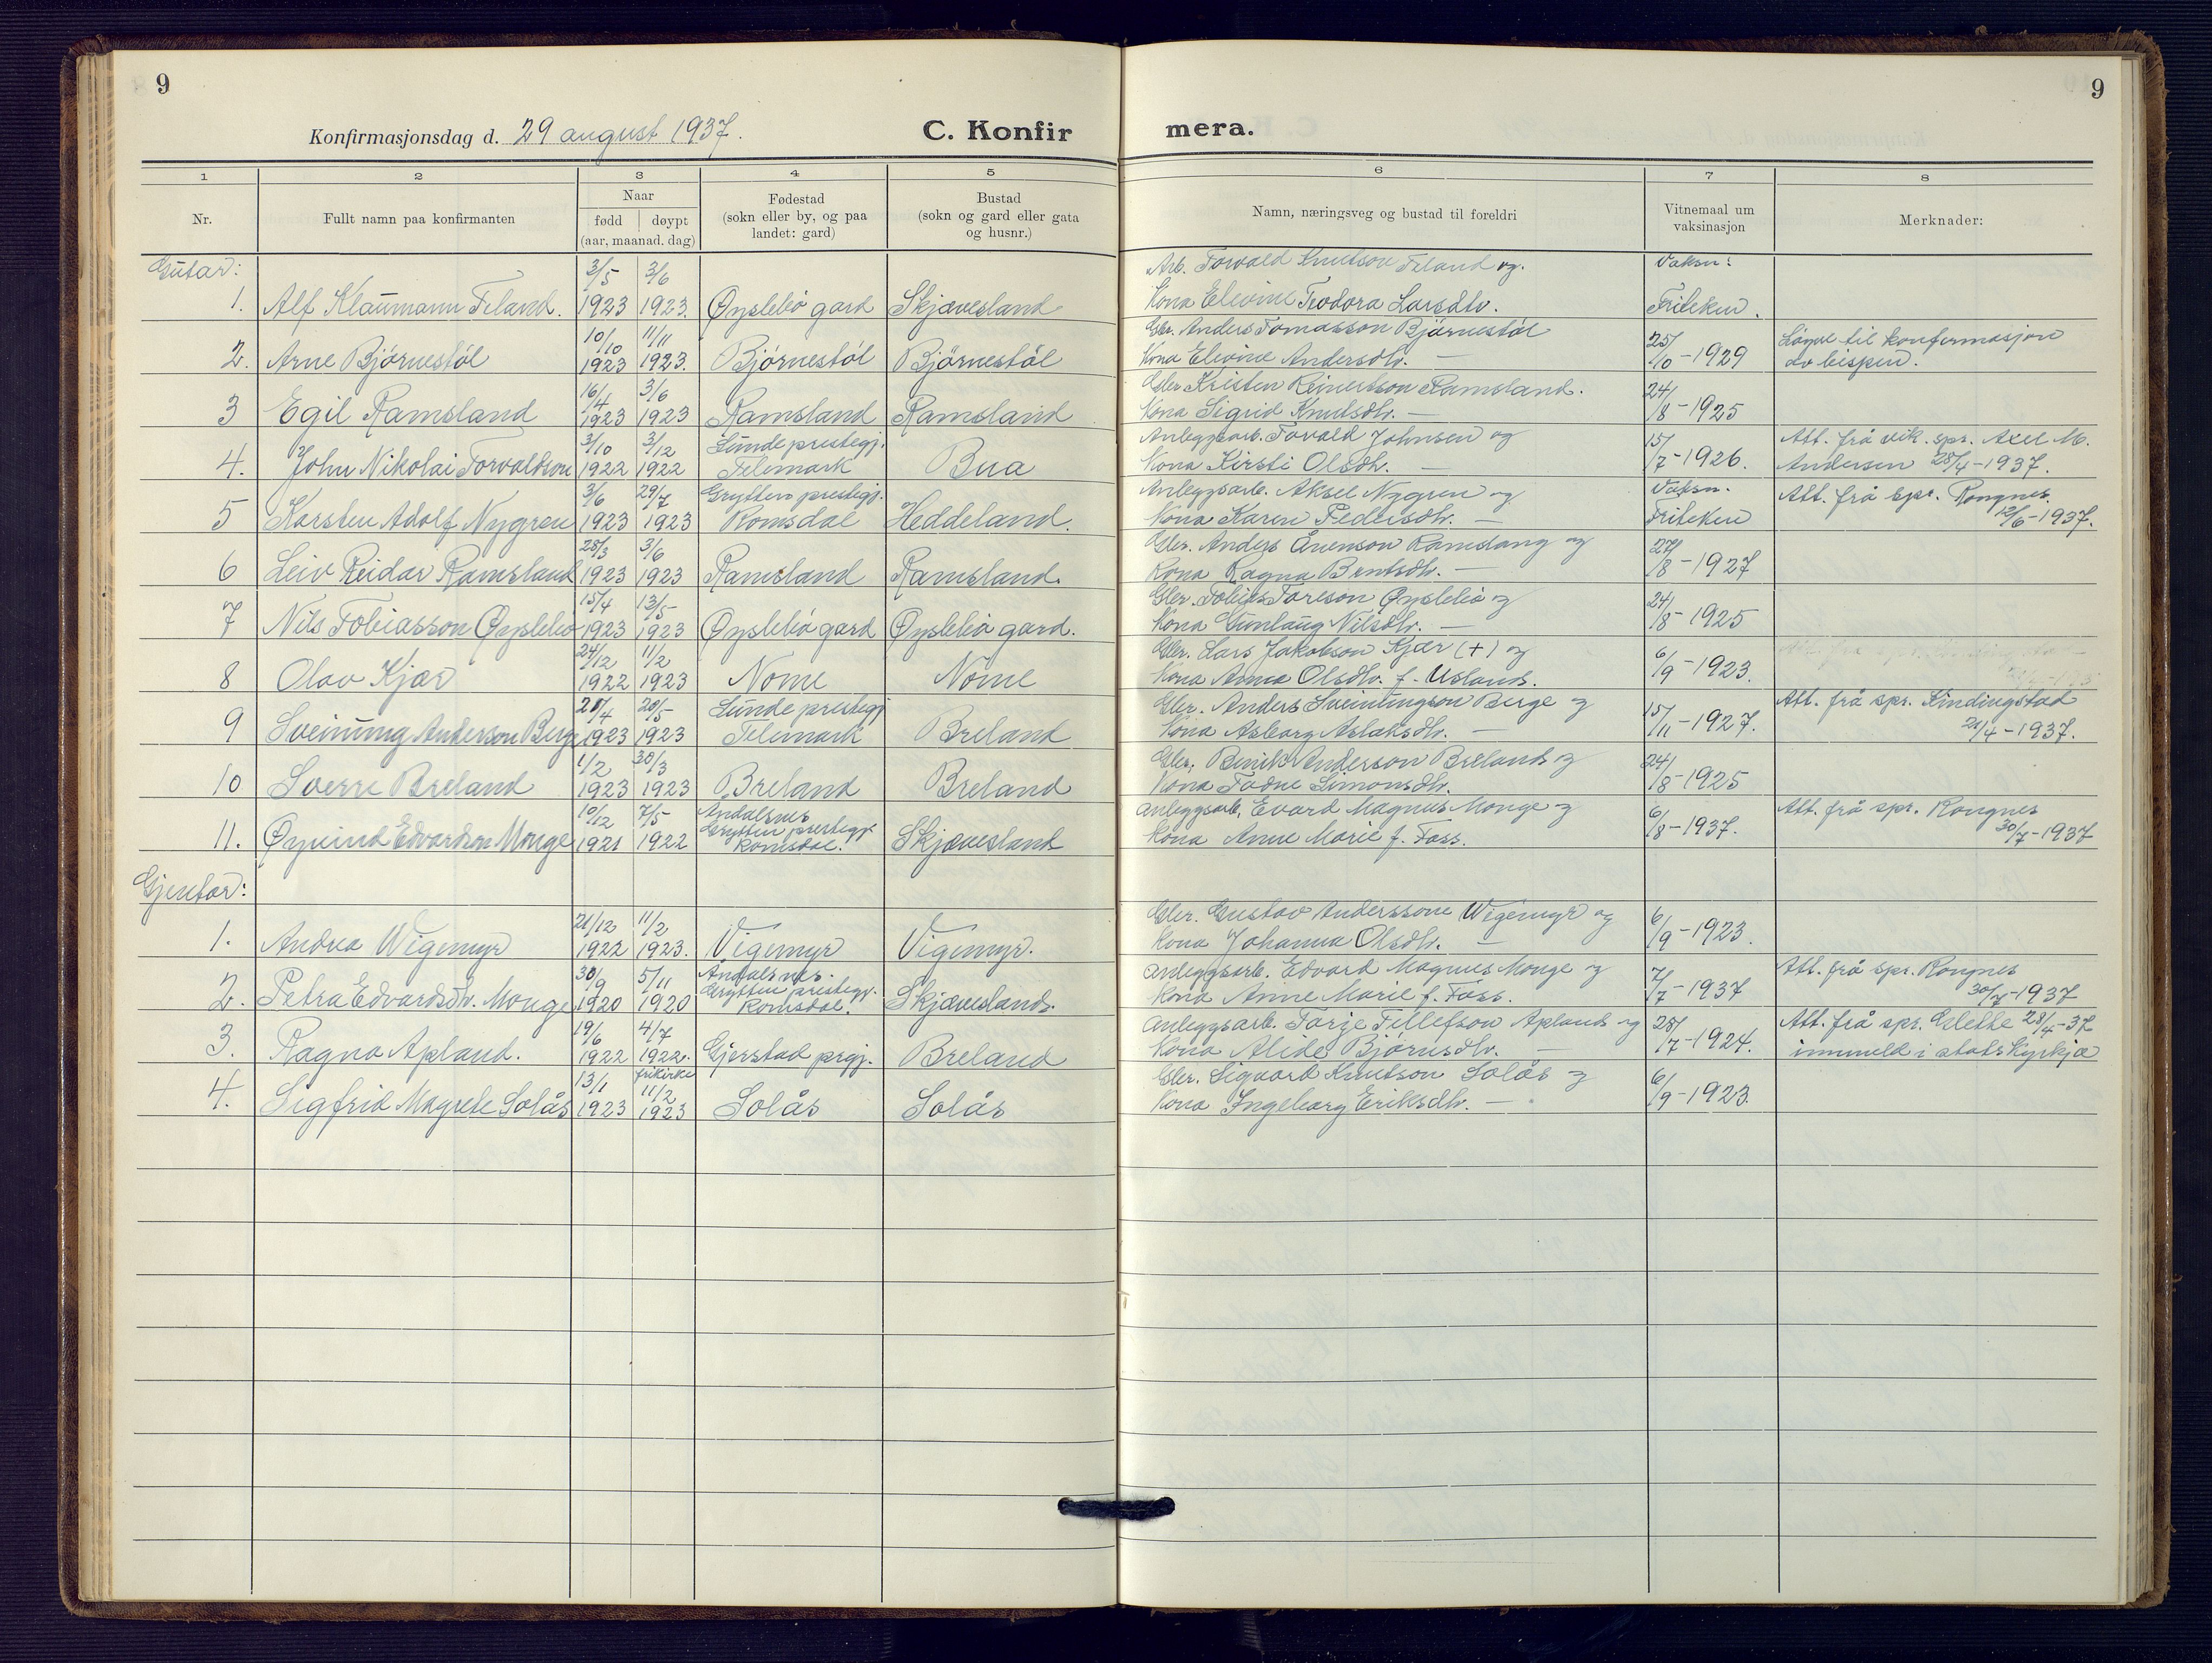 9
9
Konfirmasjonsdag d. 29 august 1937.
C. Konfir
mera.
1 2 3 4 5 6 7 8
Nr.
Fullt namn paa konfirmanten
Naar
fødd døypt
(aar, maanad, dag)
Fødestad
(sokn eller by, og paa
landet: gard)
Bustad
(sokn og gard eller gata
og husnr.)
Namn, næringsveg og bustad til foreldri
Vitnemaal um
vaksinasjon
Merknader:
Gutar:
3/5 3/6 Arb. Torvald Knutson Filand og. Vaksn:
1. Alf Klaumann Filand. 1923 1923. Øyslebö gard Skjævesland Kona Elevine Teodora Larsdtr. Friteken.
10/10 11/11 Gbr. Anders Tomasson Bjørnestöl 25/
2. Arne Bjørnestöl 1923 1923. Bjørnestöl Bjørnestöl Kona Elevine Andersdtr. — /10-1929 Löyve til konfirmasjon
av bispen.
16/4 3/6 Gbr. Kristen Reinertson Ramsland. 24/
3 Egil Ramsland 1923 1923 Ramsland Ramsland Kona Sigrid Knutsdtr. — /8-1925
3/10 3/12 Lunde prestegj. Anleggsarb. Torvald Johnsen og 15/ Att. frå vik. spr. Axel M.
4. John Nikolai Torvaldson 1922 1922 Telemark Bua Kona Kirsti Olsdtr. — /7-1926. Andersen 28/4-1937.
3/6 29/7 Grytten prestegj. Anleggsarb. Aksel Nygren og Vaksn. Att. frå spr. Rongnes
5 Karsten Adolf Nygren 1923 1923 Romsdal Heddeland. Kona Karen Pedersdtr. — Friteken 12/6-1937.
28/3 3/6 Gbr. Anders Ånenson Ramslang og 27/
6 Leiv Reidar Ramsland 1923 1923 Ramsland Ramsland. Kona Ragna Berntsdtr. — /8-1927
15/4 13/5 Gbr. Tobias Toreson Øyslebö og 24/
7 Nils Tobiasson Øyslebö 1923 1923 Øyslebö gard Øyslebö gard. Kona Gunlaug Nilsdtr. — /8-1925
24/12 11/2 Gbr. Lars Jakobson Kjær (+) og 6/
8 Olav Kjær 1922 1923 Nome Nome Kona Anna Olsdtr. f. Usland. /9-1923.
20/5 Lunde prestegj Gbr. Anders Sveinungson Berge og 15/ Att. frå spr. Kindingstad
9 Sveinung Anderson Berge 1923 1923 Telemark Breland Kona Asborg Aslaksdtr. — /11-1927. 21/4-1937.
1/2 30/3 Gbr. Benik Anderson Breland og 24/
10 Sverre Breland 1923 1923 Breland Breland Kona Todne Simonsdtr. /8-1925
10/12 7/5 Andalsnes Anleggsarb. Evard Magnus Monge og 6/ Att. frå spr. Rongnes
Grytten prestegj.
11. Øyvind Edvardson Monge 1921 1922 Romsdal. Skjævesland Kona Anne Marie f. Foss. /8-1937. 30/7-1937
Gjentor:
21/12 11/2 Gbr. Gustav Anderssone Wigemyr og 6/
1. Andrea Wigemyr 1922 1923. Vigemyr Vigemyr. Kona Johanna Olsdtr. — /9-1923.
30/9 5/11 Andalsnes. Anleggsarb. Edvard Magnus Monge og 7/ Att. frå spr. Rongnes
Grytten prestegj.
2. Petra Edvardsdtr. Monge 1920 1920 Romsdal. Skjævesland. Kona Anne Marie f. Foss. /7-1937 30/7-1937
19/6 4/7 Anleggsarb. Tarje Tellefson Apland og 28/ Att. frå spr. Glette 28/4-37
3. Ragna Apland. 1922 1922. Gjerstad prgj. Breland Kona Alide Bjørnsdtr. — /7-1924. innmeld i statskyrkja
frikirke
13/1 11/2 Gbr. Sigvard Knutson Solås og 6/
4. Sigfrid Magrete Solås 1923 1923 Solås Solås Kona Ingeborg Eriksdtr. — /9-1923.